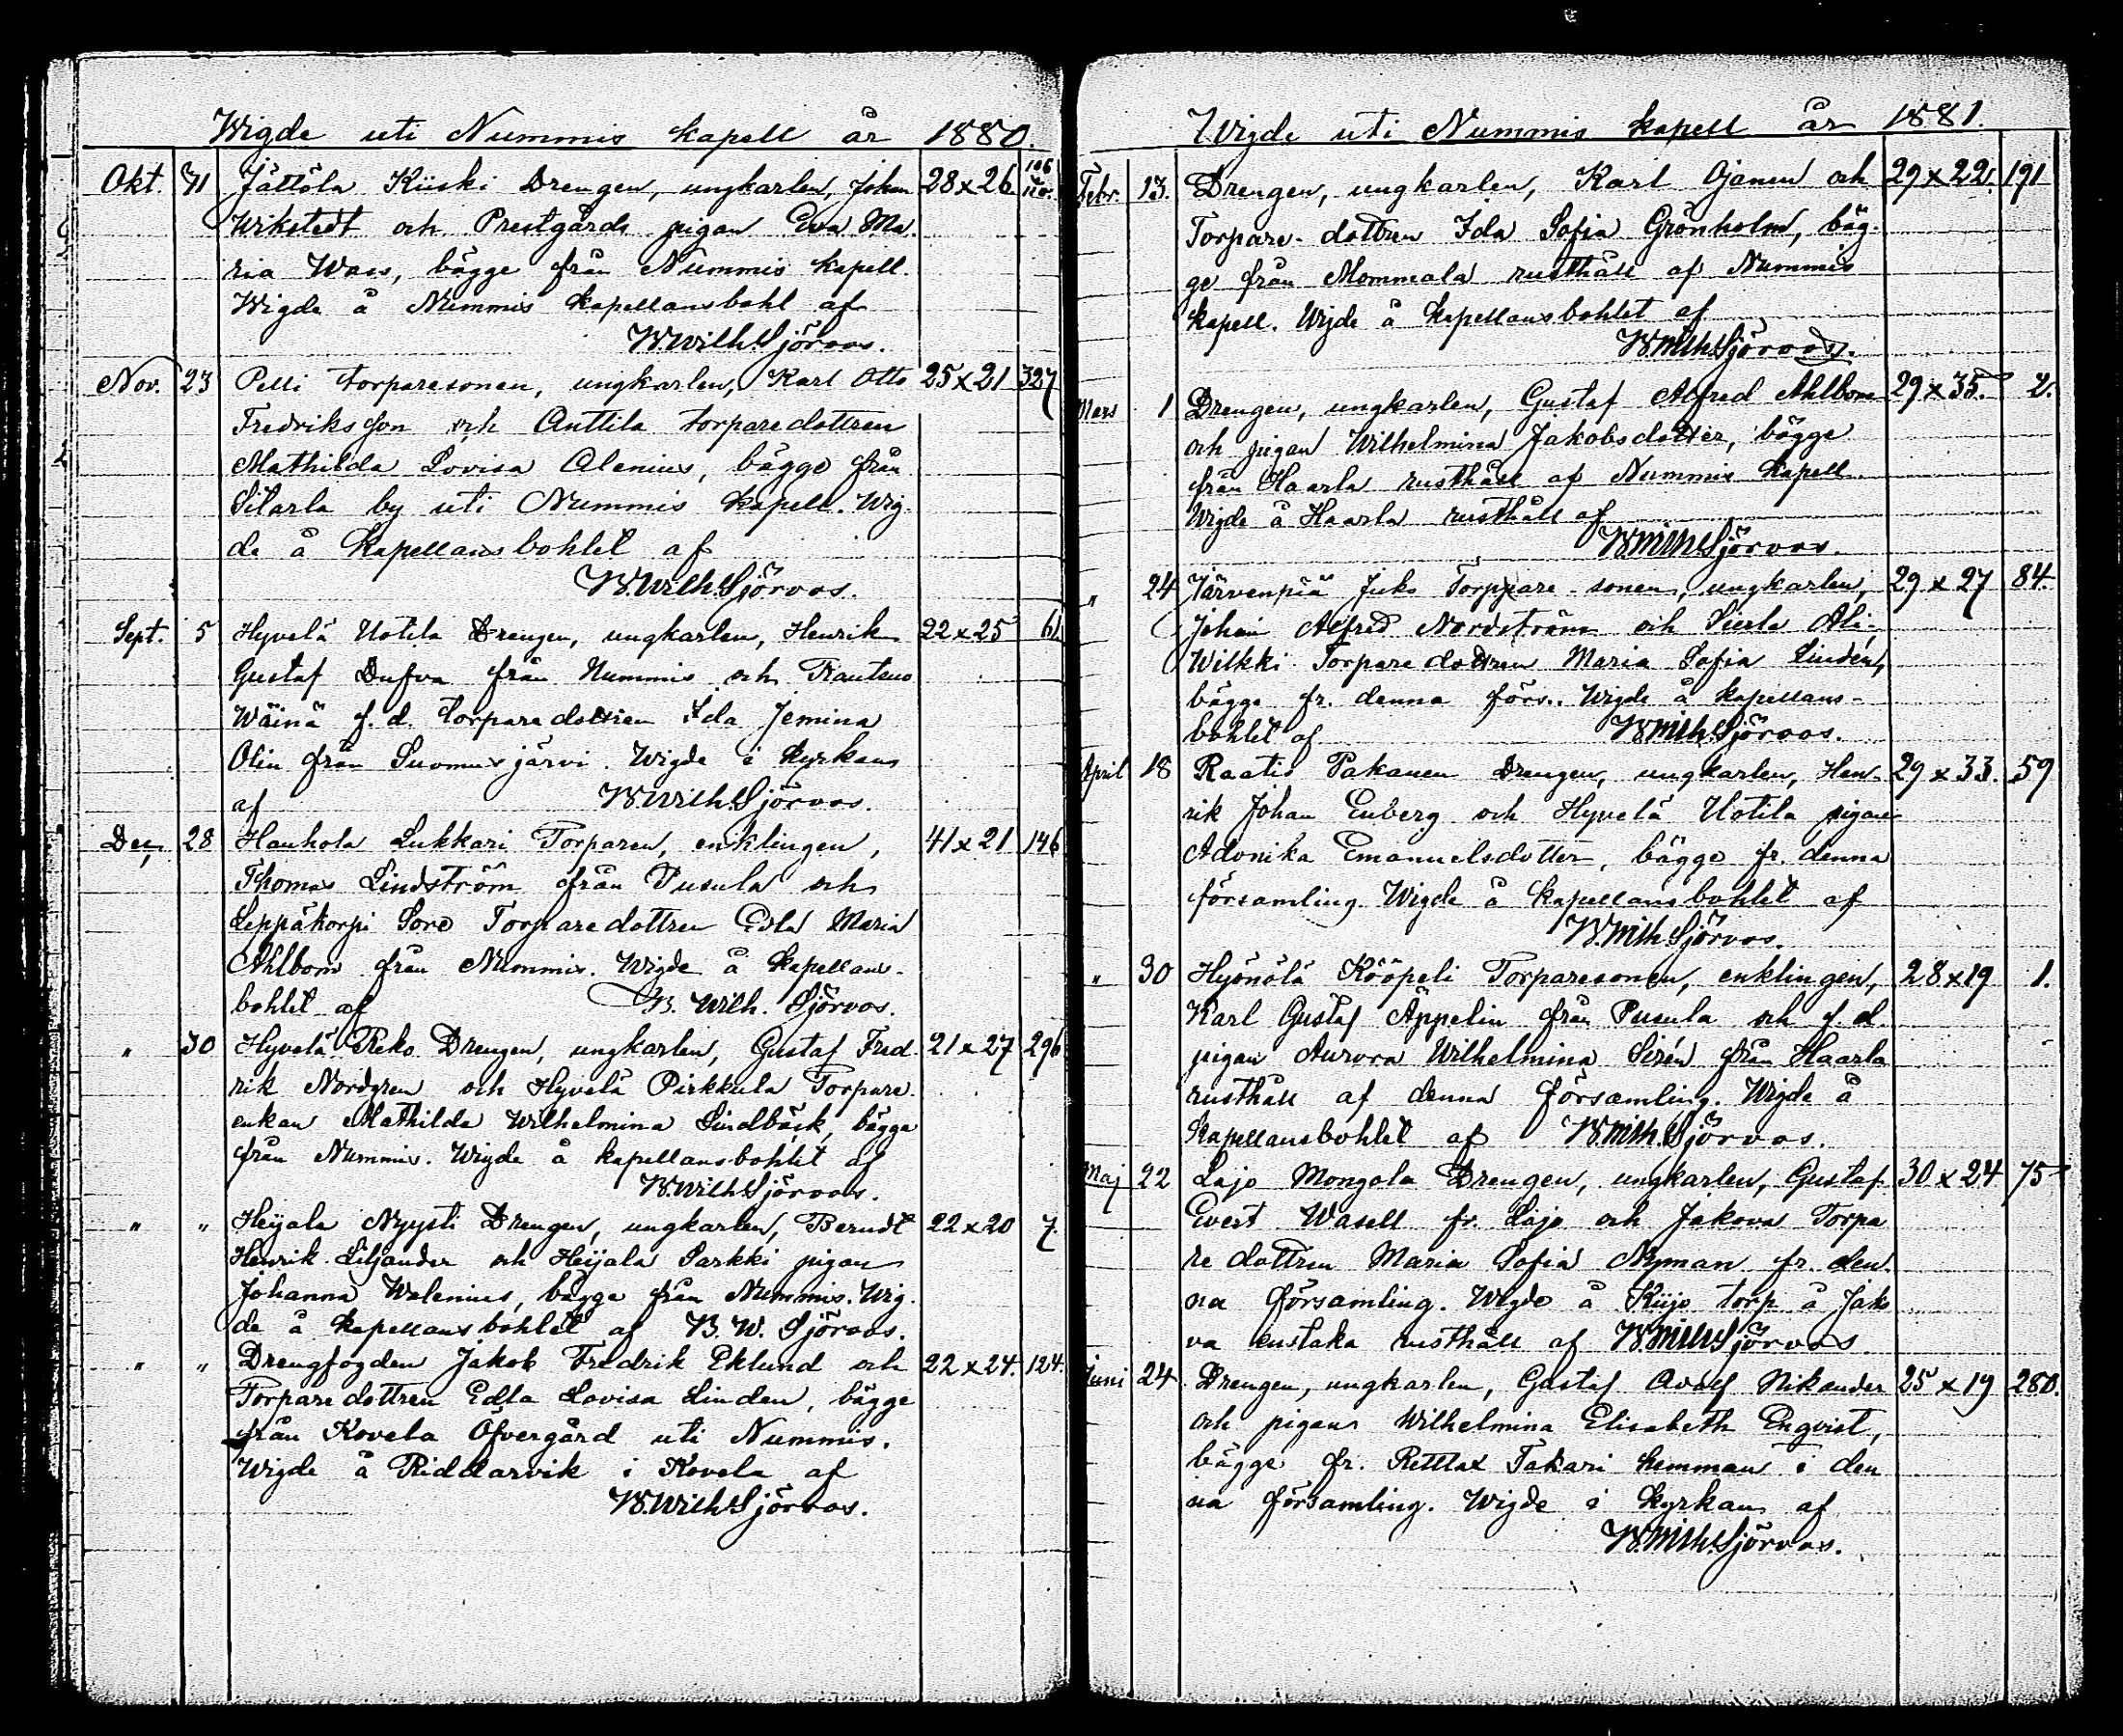 Wigde uti Nummis kapell år 1880.
Okt. 31 Jättölä Kiiski Drengen, ungkarlen, Johan 28 x 26
Wikstedt och Prestgårds pigan Eva Ma-
ria Waes, bägge från Nummis kapell.
Wigde å Nummis kapellansbohl af
W. Wilh. Sjöroos.
Nov. 23 Pelli torparesonen, ungkarlen, Karl Otto 25 x 21 327
Fredriksson och Anttila torparedottren
Mathilda Lovisa Alenius, bägge från
Sitarla by uti Nummis kapell. Wig-
de å kapellansbohlet af
W. Wilh. Sjöroos.
Sept. 5 Hyvelä Uotila Drengen, ungkarlen, Henrik 22 x 25 61
Gustaf Dufva från Nummis och
Wäinä f. d. torparedottren Ida Jemina
Olin från Suomusjärvi. Wigde i kyrkan
af W. Wilh. Sjöroos.
Dec. 28 Hauhola Lukkari Torparen, enklingen, 41 x 21 146
Thomas Lindström från Pusula och
Leppäkorpi Soro Torparedottren Edla Maria
Ahlbom från Nummis. Wigde å kapellans-
bohlet af W. Wilh. Sjöroos.
" 30 Hyvelä Reko Drengen, ungkarlen, Gustaf Fred- 21 x 27 296
rik Nordgren och Hyvelä Pirkkula Torpare-
enkan Mathilda Wilhelmina Lindbäck, bägge
från Nummis. Wigde å kapellansbohlet af
W. Wilh. Sjöroos.
" " Heijala Nyysti Drengen, ungkarlen, Berndt 22 x 20 7.
Henrik Liljander och Heijala Sarkki pigan
Johanna Walenius, bägge från Nummis. Wig-
de å kapellansbohlet af W. W. Sjöroos.
" " Drengfogden Jakob Fredrik Eklund och 22 x 24. 124.
Torparedottren Edla Lovisa Linden, bägge
från Kovela Öfvergård uti Nummis.
Wigde å Riddarvik i Kovela af
W. Wilh. Sjöroos.
Wigde uti Nummis kapell år 1881.
Febr. 13. Drengen, ungkarlen, Karl Ojanen och 29 x 22. 191
Torpare-dottren Ida Sofia Grönholm, bäg-
ge från Mommola rusthåll af Nummis
kapell. Wigde å kapellansbohlet af
W. Wilh. Sjöroos.
Mars 1 Drengen, ungkarlen, Gustaf Alfred Ahlbom 29 x 35. 2.
och pigan Wilhelmina Jakobsdotter, bägge
från Haarla rusthåll af Nummis kapell.
Wigde å Haarla rusthåll af
W. Wilh. Sjöroos.
" 24 Järvenpää Juko Torpare-sonen, ungkarlen, 29 x 27 84.
Johan Alfred Nordström och Sierla Ali-
Wilkki Torparedottren Maria Sofia Lindén,
bägge fr. denna förs.. Wigde å kapellans-
bohlet af W. Wilh. Sjöroos.
April 18 Raatis Pakanen Drengen, ungkarlen, Hen- 29 x 33. 59
rik Johan Enberg och Hyvelä Uotila pigan
Adonika Emanuelsdotter, bägge fr. denna
församling. Wigde å kapellansbohlet af
W. Wilh. Sjöroos.
" 30 Hyönölä Kööpeli Torparesonen, enklingen, 28 x 19 1.
Karl Gustaf Äppelin från Pusula och f. d.
pigan Aurora Wilhelmina Sirén från Haarla
rusthåll af denna församling. Wigde å
kapellansbohlet af W. Wilh. Sjöroos.
Maj 22 Lojo Mongola Drengen, ungkarlen, Gustaf 30 x 24 75
Evert Wasell fr. Lojo och Jakova Torpa-
re dottren Maria Sofia Nyman fr. den-
na församling. Wigde å Kiijo torp å Jako
va enstaka rusthåll af W. Wilh. Sjöroos.
Juni 24 Drengen, ungkarlen, Gustaf Adolf Nikander 25 x 19 280.
och pigan Wilhelmina Elisabeth Enqvist,
bägge fr. Retlax Takari hemman i den
na församling. Wigde i kyrkan af
W. Wilh. Sjöroos.